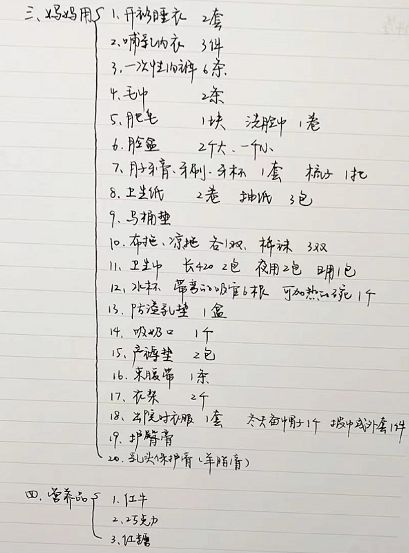 三、妈妈用
1. 开衫睡衣 2套
2. 哺乳内衣 3件
3. 一次性内裤 6条
4. 毛巾 2条
5. 肥皂 1块 洗脸巾 1卷
6. 脸盆 2个大、一个小
7. 月子牙膏、牙刷、牙杯 1套 梳子 1把
8. 卫生纸 2卷 抽纸 3包
9. 马桶垫
10. 布拖、凉拖 各1双、棉袜 3双
11. 卫生巾 长420 2包 夜用2包 日用1包
12. 水杯 带弯的吸管6根 可加热的碗 1个
13. 防溢乳垫 1盒
14. 吸奶 1个
15. 产褥垫 2包
16. 束腹带 1条
17. 衣架 2个
18. 出院时衣服 1套 冬天备帽子1个 披巾或外套1件
19. 护臀膏
20. 乳头保护膏（羊脂膏）
四、营养品
1. 红牛
2. 巧克力
3. 红糖